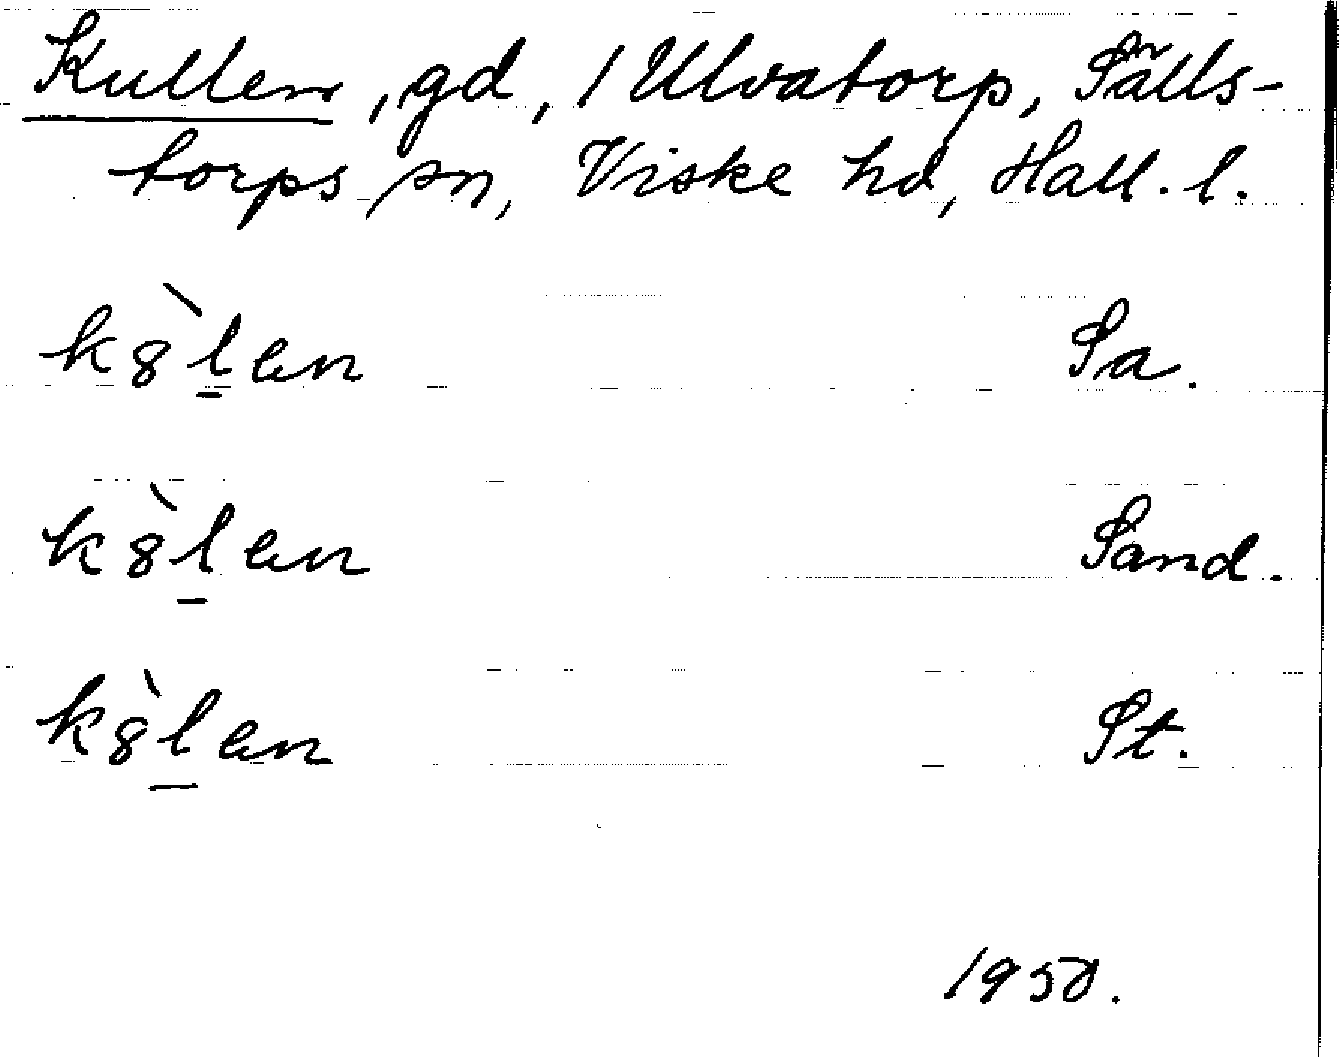 Kullen, gd, 1 Ulvatorp, Sälls-
torps sn, Viske hd, Hall. l.
k8̀l̲en Sa.
k8̀l̲en Sand.
k8̀l̲en St.
1950.